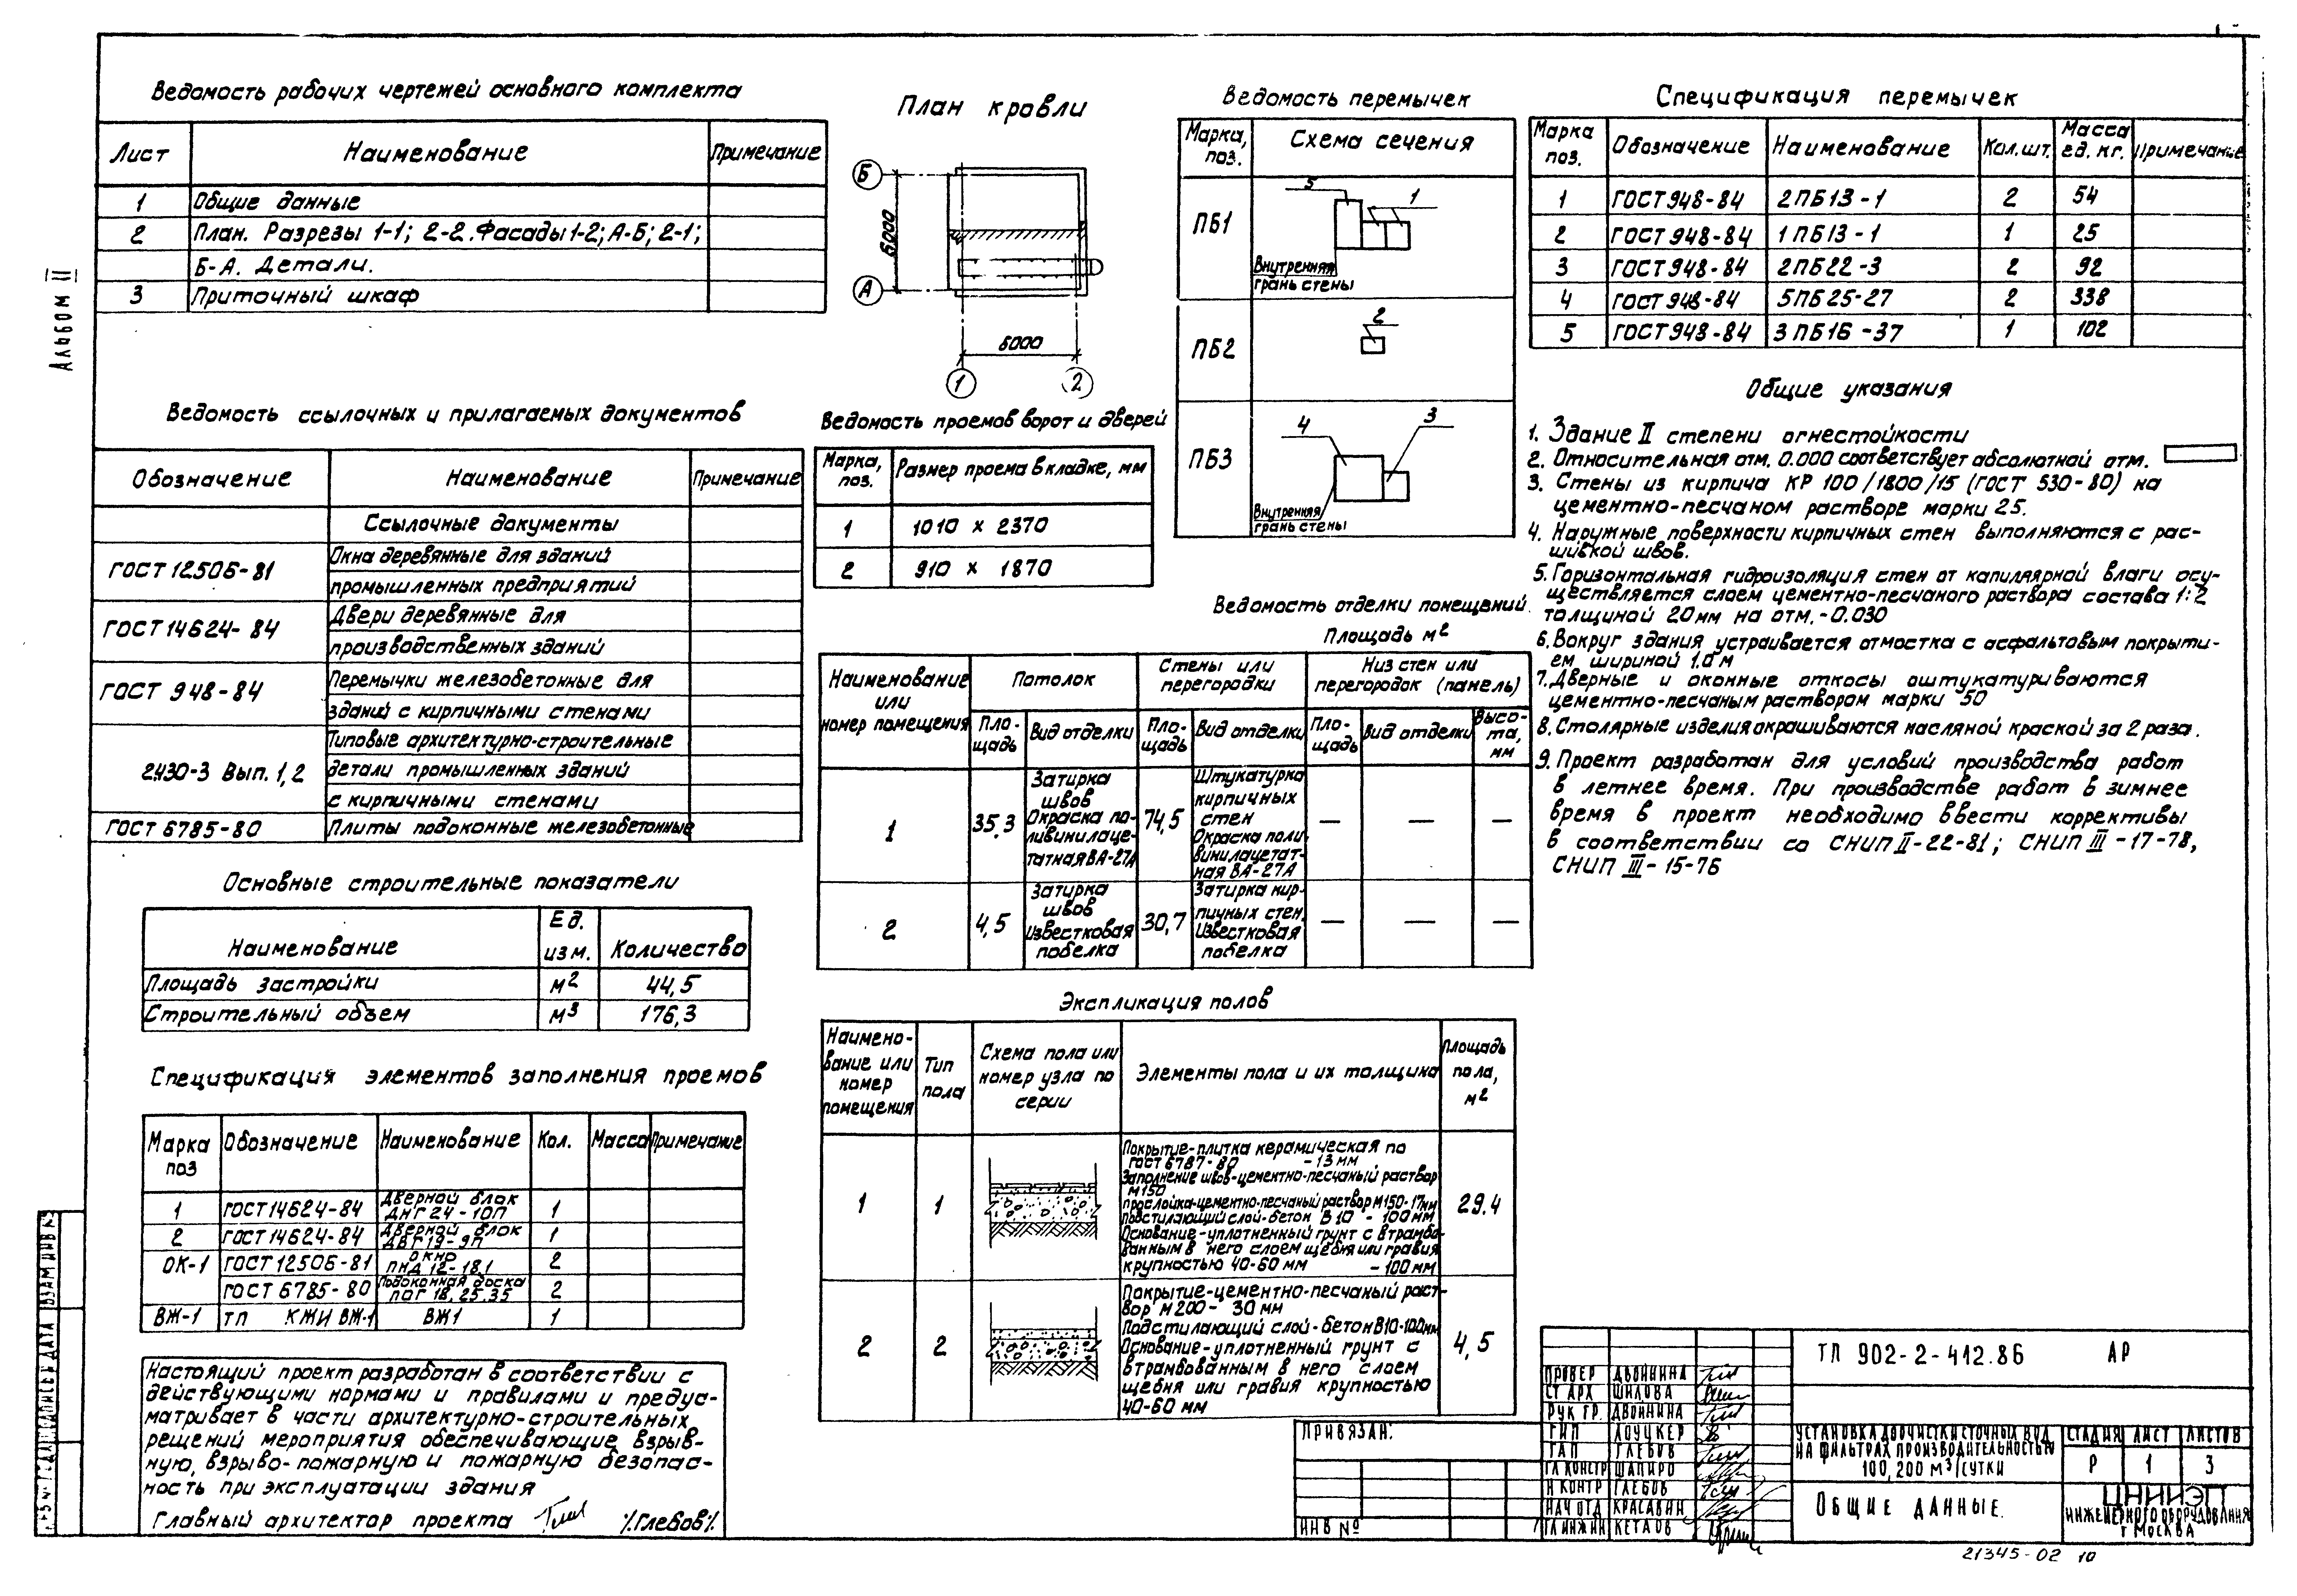 Альбом II
Ведомость рабочих чертежей основного комплекта
Лист Наименование Примечание
1 Общие данные
2 План. Разрезы 1-1; 2-2. Фасады 1-2; А-Б; 2-1;
Б-А. Детали.
3 Приточный шкаф
Ведомость ссылочных и прилагаемых документов
Обозначение Наименование Примечание
Ссылочные документы
ГОСТ 12506-81 Окна деревянные для зданий
промышленных предприятий
ГОСТ 14624-84 Двери деревянные для
производственных зданий
ГОСТ 948-84 Перемычки железобетонные для
зданий с кирпичными стенами
2.430-3 Вып. 1, 2 Типовые архитектурно-строительные
детали промышленных зданий
с кирпичными стенами
ГОСТ 6785-80 Плиты подоконные железобетонные
Основные строительные показатели
Наименование Ед. изм. Количество
Площадь застройки м2 44,5
Строительный объем м3 176,3
Спецификация элементов заполнения проемов
Марка поз Обозначение Наименование Кол. Масса Примечание
1 ГОСТ 14624-84 Дверной блок ДНГ 24-10П 1
2 ГОСТ 14624-84 Дверной блок ДВГ 19-9П 1
ОК-1 ГОСТ 12506-81 окно ПНД 12-18.1 2
ГОСТ 6785-80 Подоконная доска ПОГ 18.25.35 2
ВЖ-1 ТП КЖИ ВЖ-1 ВЖ1 1
Настоящий проект разработан в соответствии с
действующими нормами и правилами и предус-
матривает в части архитектурно-строительных
решений мероприятия обеспечивающие взрыв-
ную, взрыво-пожарную и пожарную безопас-
ность при эксплуатации здания
Главный архитектор проекта /Глебов/
План кровли
Б
А
6000
6000
1 2
Ведомость проемов ворот и дверей
Марка, поз. Размер проема в кладке, мм
1 1010 х 2370
2 910 х 1870
Ведомость перемычек
Марка, поз. Схема сечения
ПБ1
5 1
Внутренняя
грань стены
ПБ2
2
ПБ3
4 3
Внутренняя
грань стены
Ведомость отделки помещений
Площадь м2
Наименование или номер помещения
Потолок
Стены или перегородки
Низ стен или перегородок (панель)
Площадь Вид отделки Площадь Вид отделки Площадь Вид отделки Высота, мм
1 35.3 Затирка швов Окраска поливинилацетатная ВА-27А 74,5 Штукатурка кирпичных стен Окраска поливинилацетатная ВА-27А — — —
2 4,5 Затирка швов Известковая побелка 30,7 Затирка кирпичных стен. Известковая побелка — — —
Экспликация полов
Наименование или номер помещения Тип пола Схема пола или номер узла по серии Элементы пола и их толщина Площадь пола, м2
1 1 29.4
Покрытие-плитка керамическая по
ГОСТ 6787-80 - 13 мм
Заполнение швов-цементно-песчаный раствор
М150
прослойка-цементно-песчаный раствор М150-17мм
подстилающий слой-бетон В10 - 100мм
Основание-уплотненный грунт с втрамбо-
ванным в него слоем щебня или гравия
крупностью 40-60 мм - 100мм
2 2 4,5
Покрытие-цементно-песчаный раст-
вор М200 - 30 мм
Подстилающий слой-бетон В10-100мм
Основание-уплотненный грунт с
втрамбованным в него слоем
щебня или гравия крупностью
40-60 мм
Спецификация перемычек
Марка поз. Обозначение Наименование Кол. шт. Масса ед. кг. Примечание
1 ГОСТ 948-84 2ПБ13-1 2 54
2 ГОСТ 948-84 1ПБ13-1 1 25
3 ГОСТ 948-84 2ПБ22-3 2 92
4 ГОСТ 948-84 5ПБ25-27 2 338
5 ГОСТ 948-84 3ПБ16-37 1 102
Общие указания
1. Здание II степени огнестойкости
2. Относительная отм. 0.000 соответствует абсолютной отм.
3. Стены из кирпича КР 100/1800/15 (ГОСТ 530-80) на
цементно-песчаном растворе марки 25.
4. Наружные поверхности кирпичных стен выполняются с рас-
шивкой швов.
5. Горизонтальная гидроизоляция стен от капилярной влаги осу-
ществляется слоем цементно-песчаного раствора состава 1:2
толщиной 20мм на отм. -0.030
6. Вокруг здания устраивается отмостка с асфальтовым покрыти-
ем шириной 1.0 м
7. Дверные и оконные откосы оштукатуриваются
цементно-песчаным раствором марки 50
8. Столярные изделия окрашиваются масляной краской за 2 раза.
9. Проект разработан для условий производства работ
в летнее время. При производстве работ в зимнее
время в проект необходимо ввести коррективы
в соответствии со СНИП II-22-81; СНИП III-17-78,
СНИП III-15-76
Привязан:
Инв №
Провер Двойнина
Ст арх Шилова
Рук гр. Двойнина
ГИП
ГАП Глебов
Гл констр Шапиро
Н контр Глебов
Нач отд Красавин
Гл инжин Кетаов
ТП 902-2-412.86 АР
Установка доочистки сточных вод
на фильтрах производительностью
100, 200 м3/сутки
Стадия Лист Листов
Р 1 3
Общие данные.
ЦНИИЭП
инженерного оборудования
г Москва
21345-02 10